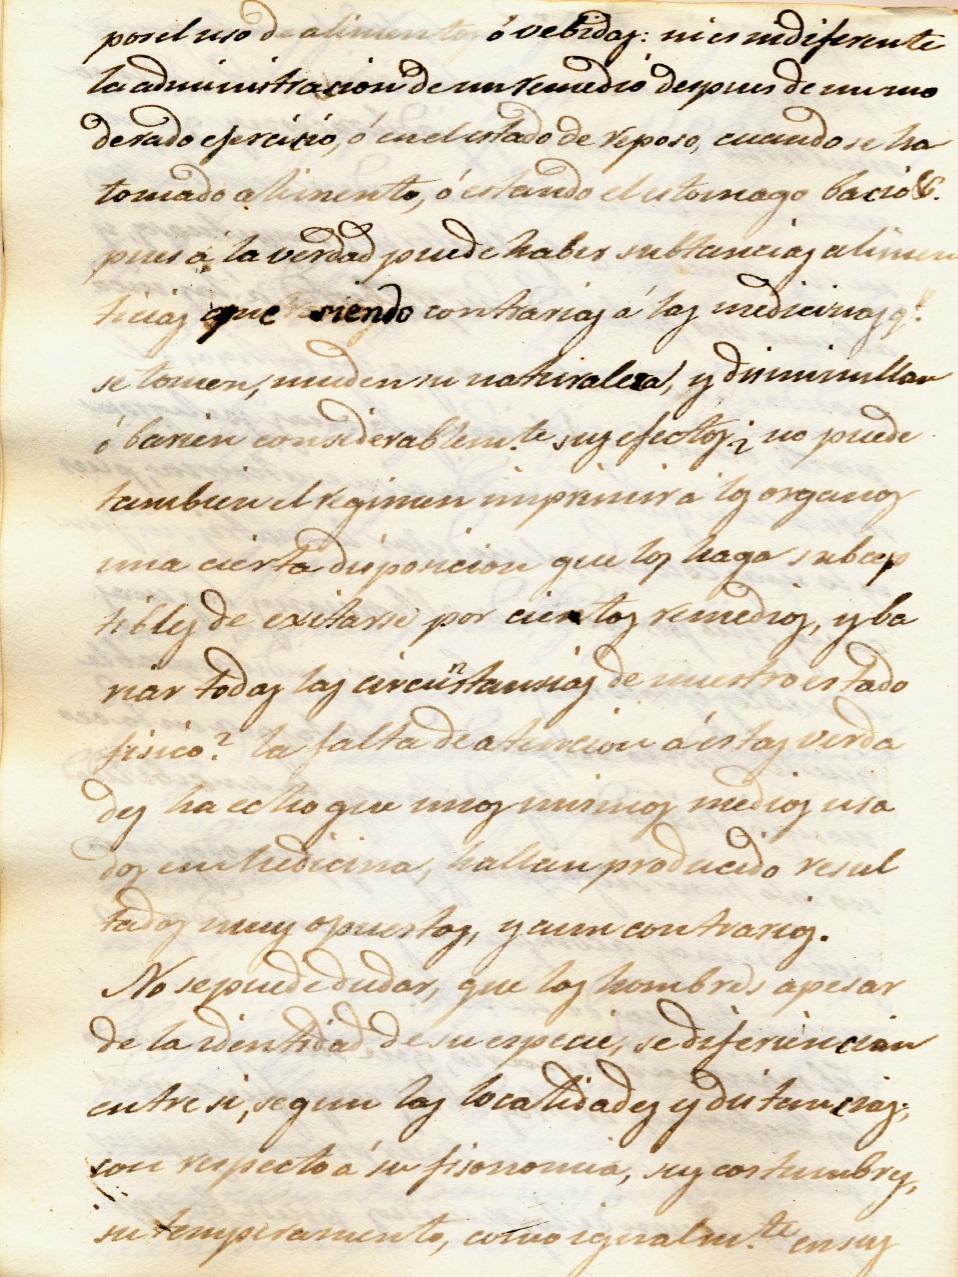 por el uso de alimentos ó vebidas: ni es indiferente
la administracion de un remedio despues de un mo
derado ejercisio, ó en el estado de reposo, cuando se ha
tomado alimento, ó estando el estomago bacio &.
pues á la verdad puede haber substancias alimen
ticias que siendo contrarias á las medicinas q.^e
se tomen, muden su naturaleza, y disminullan
ó barien considerablem.^te sus efectos. ¿ no puede
tambien el regimen imprimir a los organos
una cierta disposicion que los haga subcep
tibles de exitarse por ciertos remedios, y ba
riar todas las circunstansias de nuestro estado
fisico? la falta de atencion á estas verda
des ha echo que unos mismos medios usa
dos en Medicina, hallan producido resul
tados muy opuestos, y aun contrarios.
No se puede dudar, que los hombres apesar
de la identidad de su especie, se diferencian
entre si, segun las localidades y distancias;
con respecto á su fisonomia, sus costumbres,
su temperamento, como igualm.^te en sus